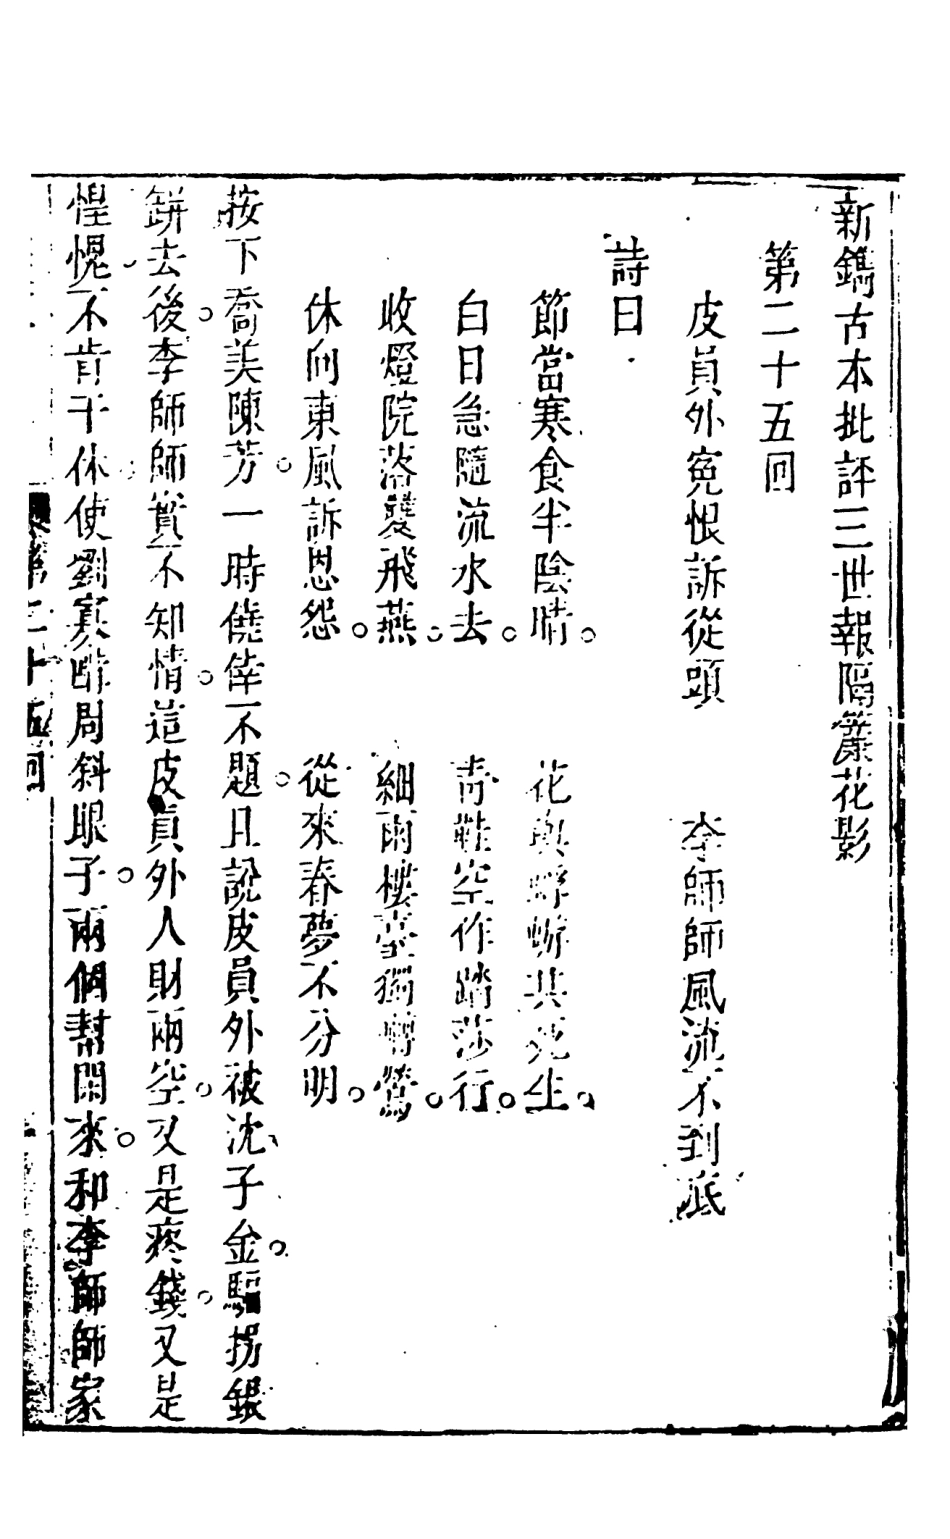 新鐫古本批評三世報隔簾花影
第二十五回
皮員外寃恨訴從頭　李師師風流不到底
詩曰
節當寒食半陰晴。　花與蜉蝣共死生。
白日急隨流水去。　青鞋空作踏莎行。
收燈院落雙飛燕。　細雨樓臺獨囀鶯。
休向東風訴恩怨。　從來春夢不分明。
按下喬美陳芳。一時僥倖不題。且說皮員外被沈子金。騙拐銀
鉼去後。李師師實不知情。這皮員外人財兩空。又是疼錢。又是
惶愧。不肯干休。使劉寡嘴周斜眼子。兩個幫閑。來和李師師家
第二十五回